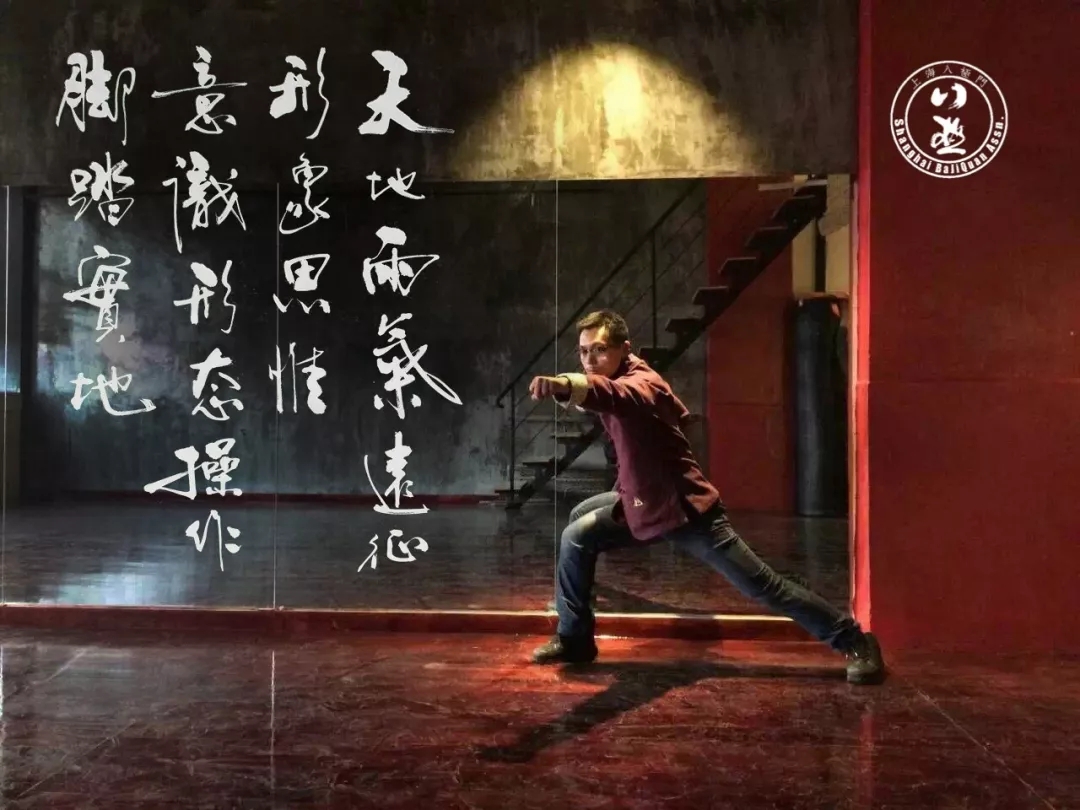 天地兩氣遠征
形象思惟
意識形态操作
脚踏實地
上海八極門
八極
Shanghai BaJiQuan Assn.